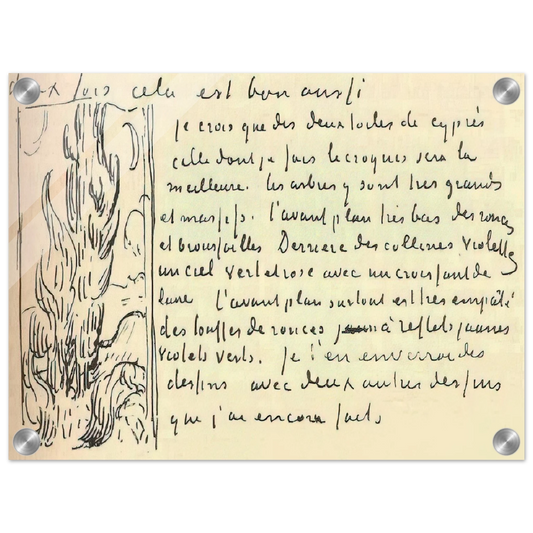 fois cela est bon aussi
je crois que des deux toiles de cyprès
celle dont je fais le croquis sera la
meilleure. les arbres y sont très grands
et massifs. l'avant plan très bas des ronces
et broussailles Derriere des collines violettes
un ciel vert et rose avec un croissant de
lune L'avant plan surtout est très empâté
des touffes de ronces à reflets jaunes
violets verts. Je t'en enverrai des
dessins avec deux autres dessins
que j'ai encore faits